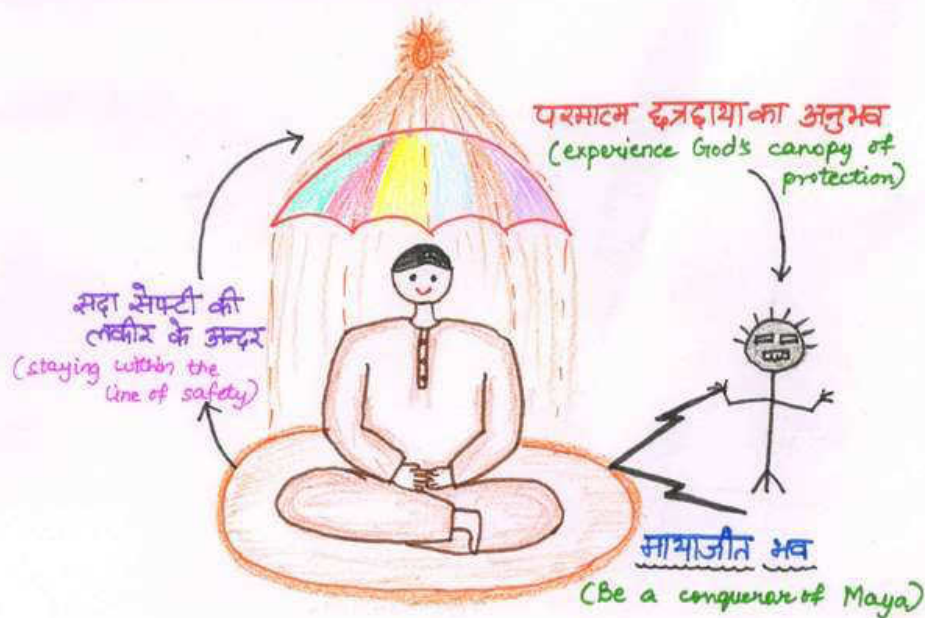 परमात्म छत्रछाया का अनुभव
(experience God's canopy of
protection)
सदा सेफ्टी की
लकीर के अन्दर
(staying within the
line of safety)
मायाजीत भव
(Be a conqueror of Maya)